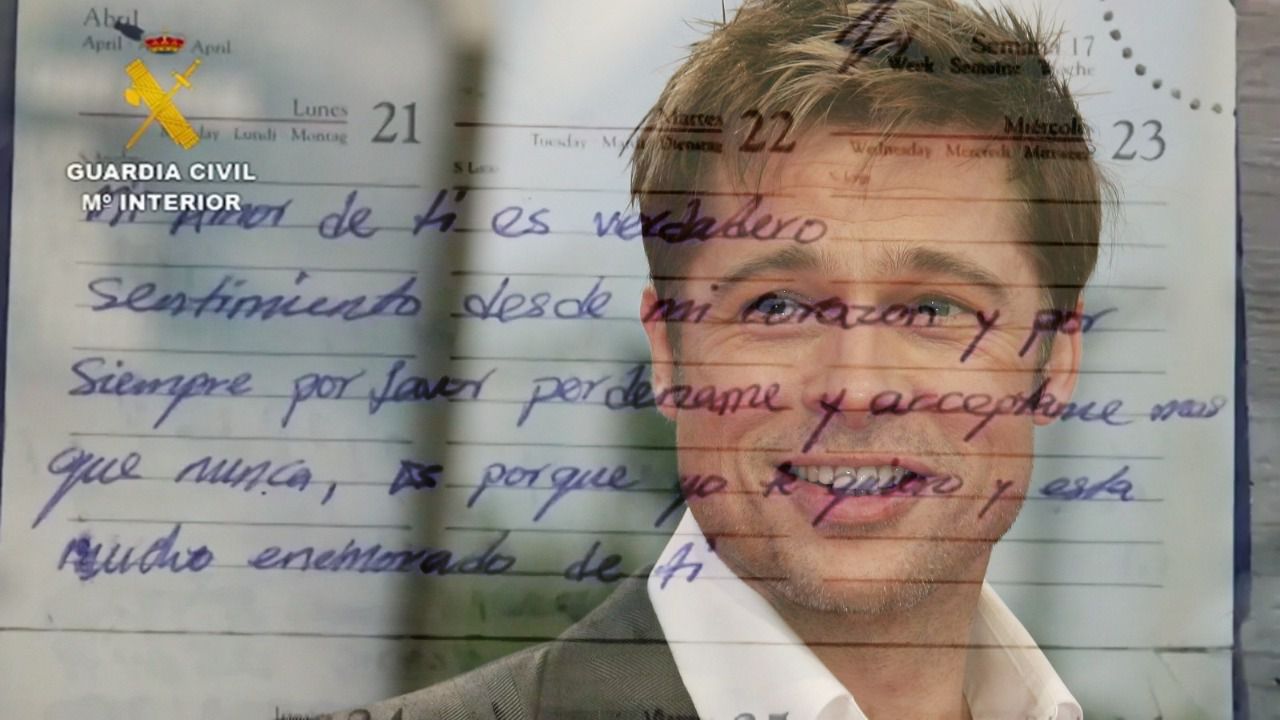 Abril
April April
Semana 17
Week Semaine Woche
Lunes 21
Lundi Montag
Martes 22
Tuesday Dienstag
Miércoles 23
Wednesday Mercredi
GUARDIA CIVIL
Mº INTERIOR
Mi Amor de ti es verdadero
Sentimiento desde mi corazon y por
Siempre por favor perdename y acceptame mas
que nunca, porque yo te quiero y esta
mucho enemorado de ti